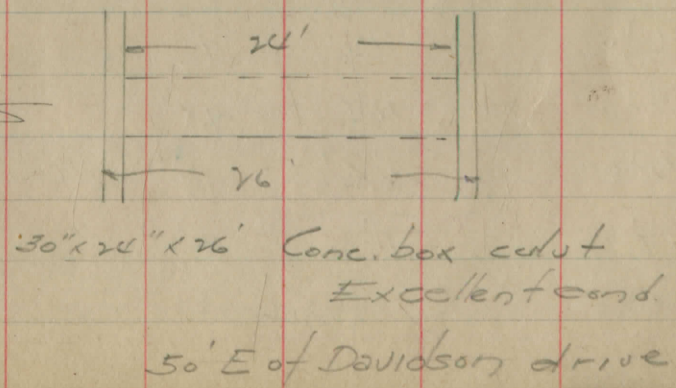 24'
26'
30" x 24" x 26' Conc. box culvt
Excellent cond.
50' E of Davidson drive